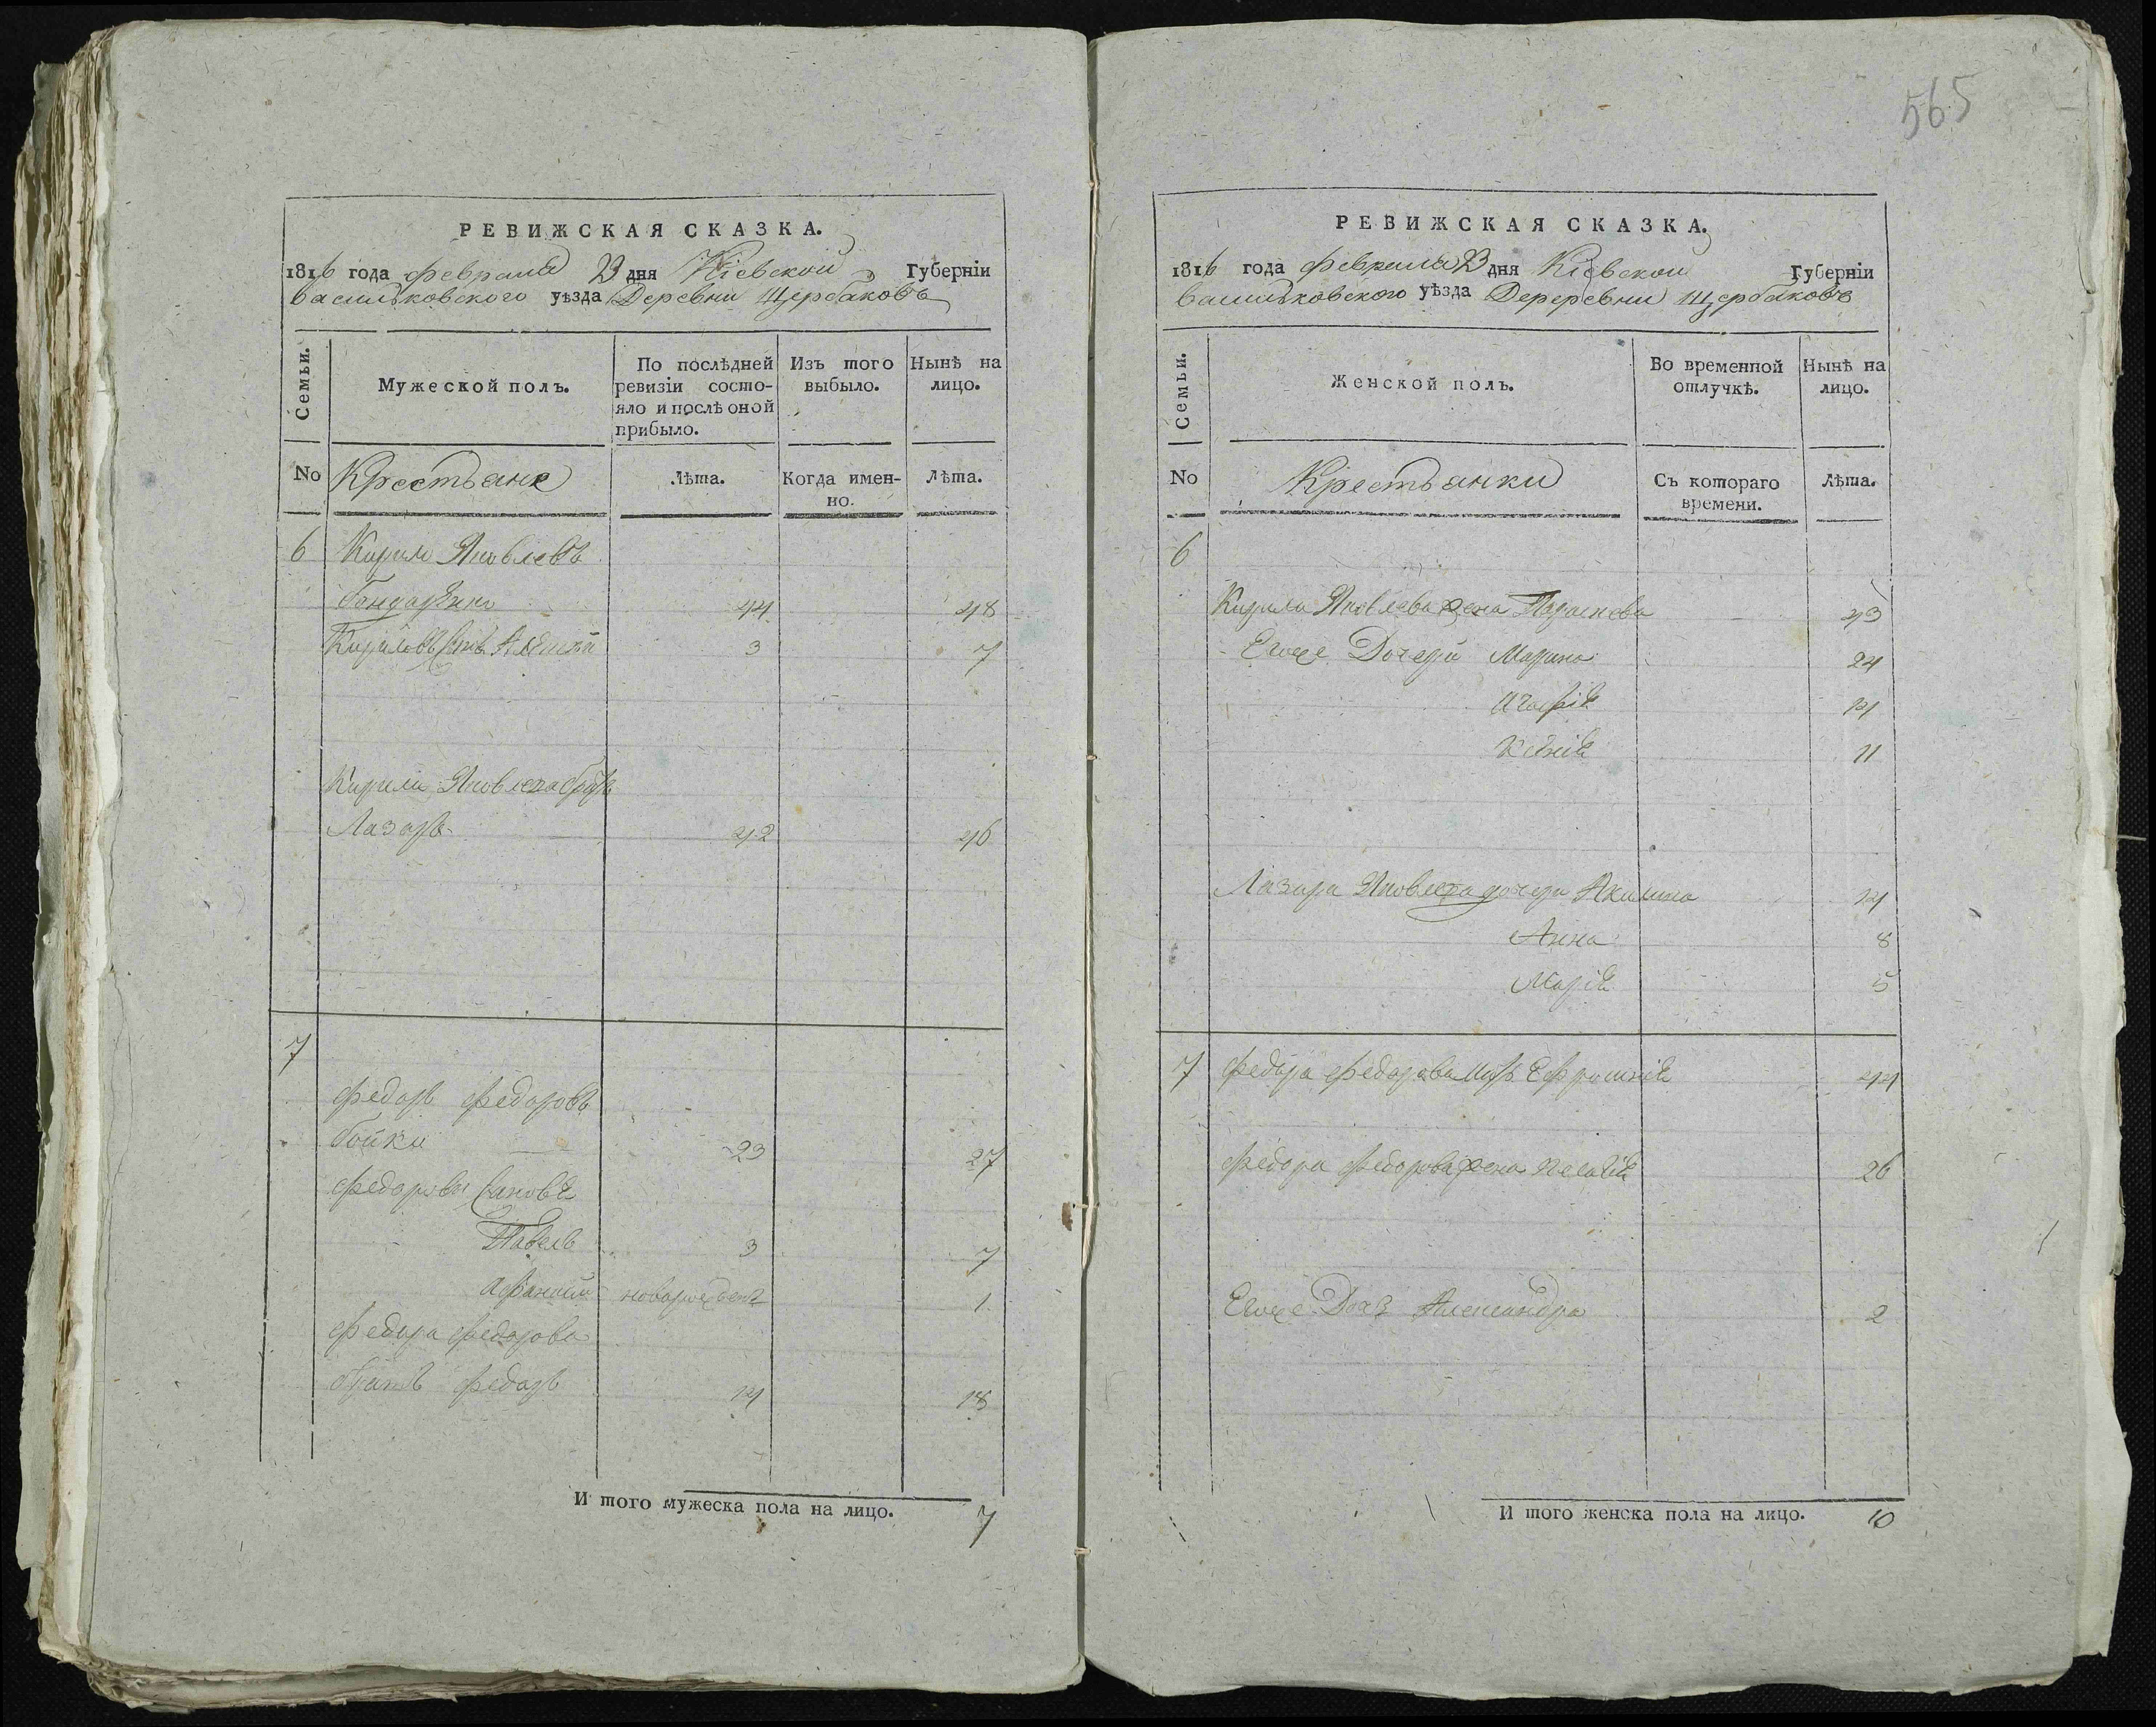 РЕВИЖСКАЯ СКАЗКА.
1816 года февраля 23 дня Кіевской Губерніи
Васильковского уѣзда Деревни Щербаковъ
Семьи.
Мужеской полъ.
По послѣдней ревизіи состояло и послѣ оной прибыло.
Изъ того выбыло.
Нынѣ на лицо.
No Крестьяне Лѣта. Когда именно. Лѣта.
6 Кирило Яковлевъ
Бондаренко 44 48
Кириловъ сынъ 3 7
Кирила Яковлева братъ
Лазарь 42 46
7
Федоръ Федоровъ
Бойко 23 27
Федоровы сыновья
Павелъ 3 7
Афанасій новорожденъ 1
Федора Федорова
братъ Федоръ 14 18
И того мужеска пола на лицо. 7
565
РЕВИЖСКАЯ СКАЗКА.
1816 года февраля 23 дня Кіевской Губерніи
Васильковского уѣзда Дереревни Щербаковъ
Семьи.
Женской полъ.
Во временной отлучкѣ.
Нынѣ на лицо.
No Крестьянки Съ котораго времени. Лѣта.
6
Кирила Яковлева жена Параскева 43
Егоже Дочери Марина 24
Агафія 14
Ксенія 11
Лазаря Яковлева дочери Акилина 14
Анна 8
Марія 5
7 Федора Федорова мать Ефросинія 44
Федора Федорова жена Пелагія 26
Егоже Дочь Александра 2
И того женска пола на лицо. 10